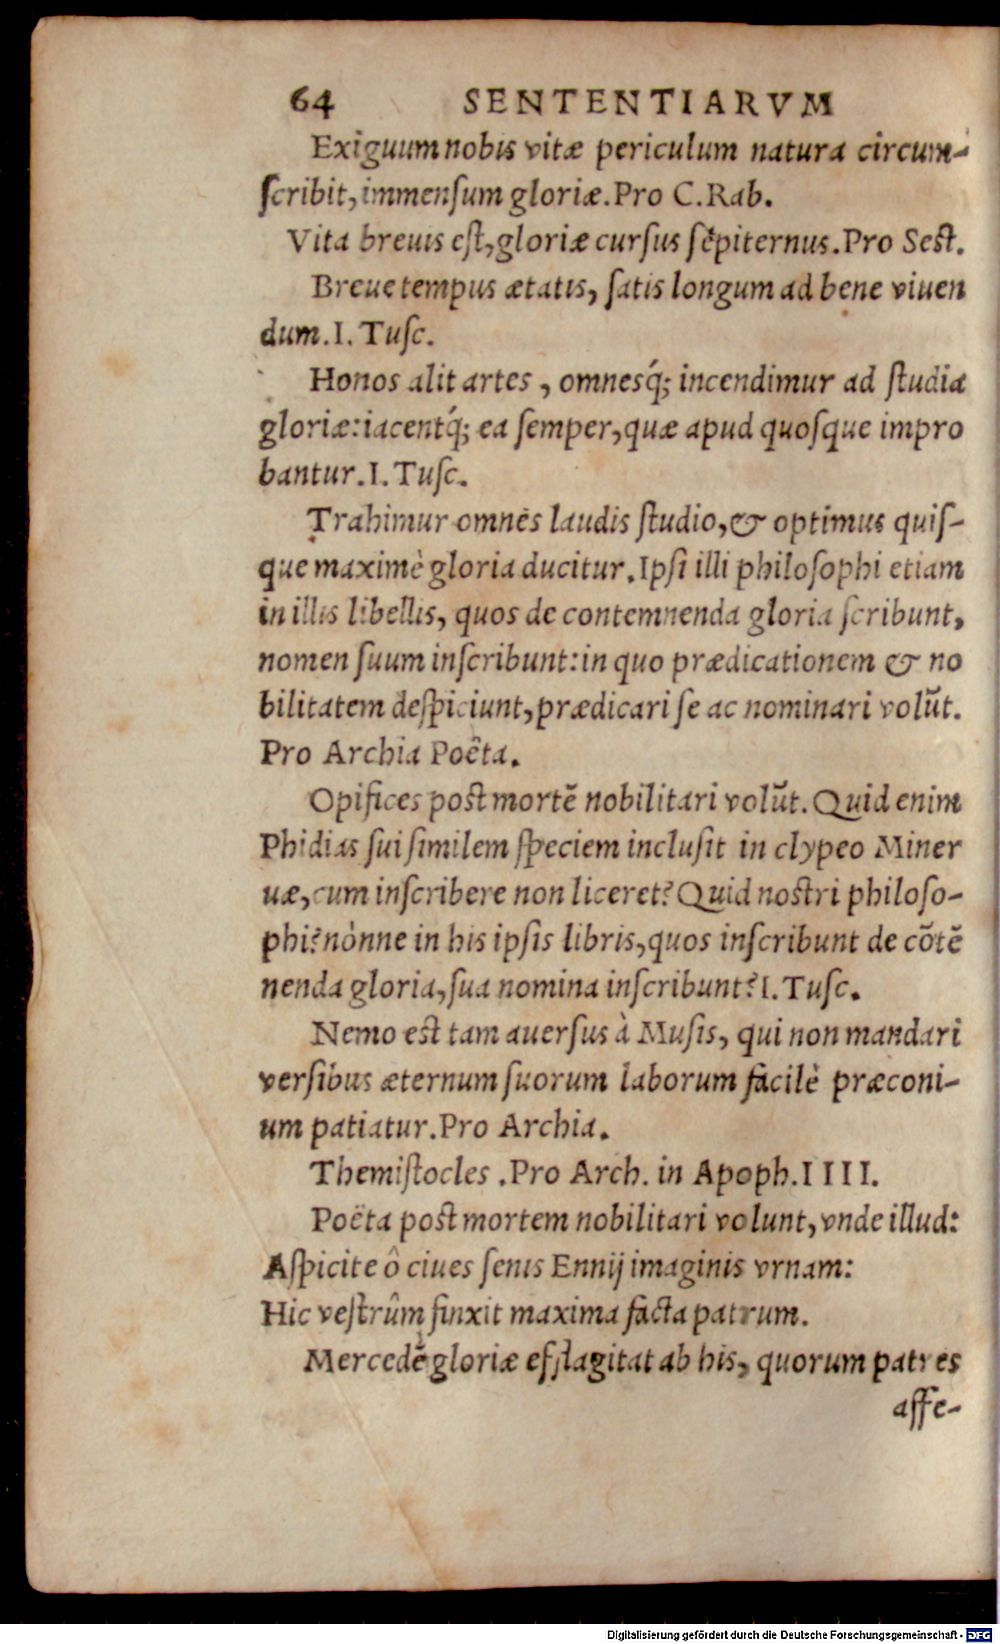 64 SENTENTIARVM
Exiguum nobis vitæ periculum natura circum-
ſcribit, immenſum gloriæ. Pro C. Rab.
Vita breuis eſt, gloriæ curſus ſẽpiternus. Pro Seſt.
Breue tempus ætatis, ſatis longum ad bene viuen
dum. I. Tuſc.
Honos alit artes, omnesq́; incendimur ad ſtudia
gloriæ: iacentq́; ea ſemper, quæ apud quoſque impro
bantur. I. Tuſc.
Trahimur omnes laudis ſtudio, & optimus quiſ-
que maximè gloria ducitur. Ipſi illi philoſophi etiam
in illis libellis, quos de contemnenda gloria ſcribunt,
nomen ſuum inſcribunt: in quo prædicationem & no
bilitatem deſpiciunt, prædicari ſe ac nominari volũt.
Pro Archia Poëta.
Opifices poſt mortẽ nobilitari volũt. Quid enim
Phidias ſui ſimilem ſpeciem incluſit in clypeo Miner
uæ, cum inſcribere non liceret? Quid noſtri philoſo-
phi? nònne in his ipſis libris, quos inſcribunt de cõtẽ
nenda gloria, ſua nomina inſcribunt? I. Tuſc.
Nemo eſt tam auerſus à Muſis, qui non mandari
verſibus æternum ſuorum laborum facilè præconi-
um patiatur. Pro Archia.
Themiſtocles. Pro Arch. in Apoph. IIII.
Poëta poſt mortem nobilitari volunt, vnde illud:
Aſpicite ô ciues ſenis Ennij imaginis vrnam:
Hic veſtrûm finxit maxima facta patrum.
Mercedẽ gloriæ efflagitat ab his, quorum patres
affe-
Digitalisierung gefördert durch die Deutsche Forschungsgemeinschaft - DFG